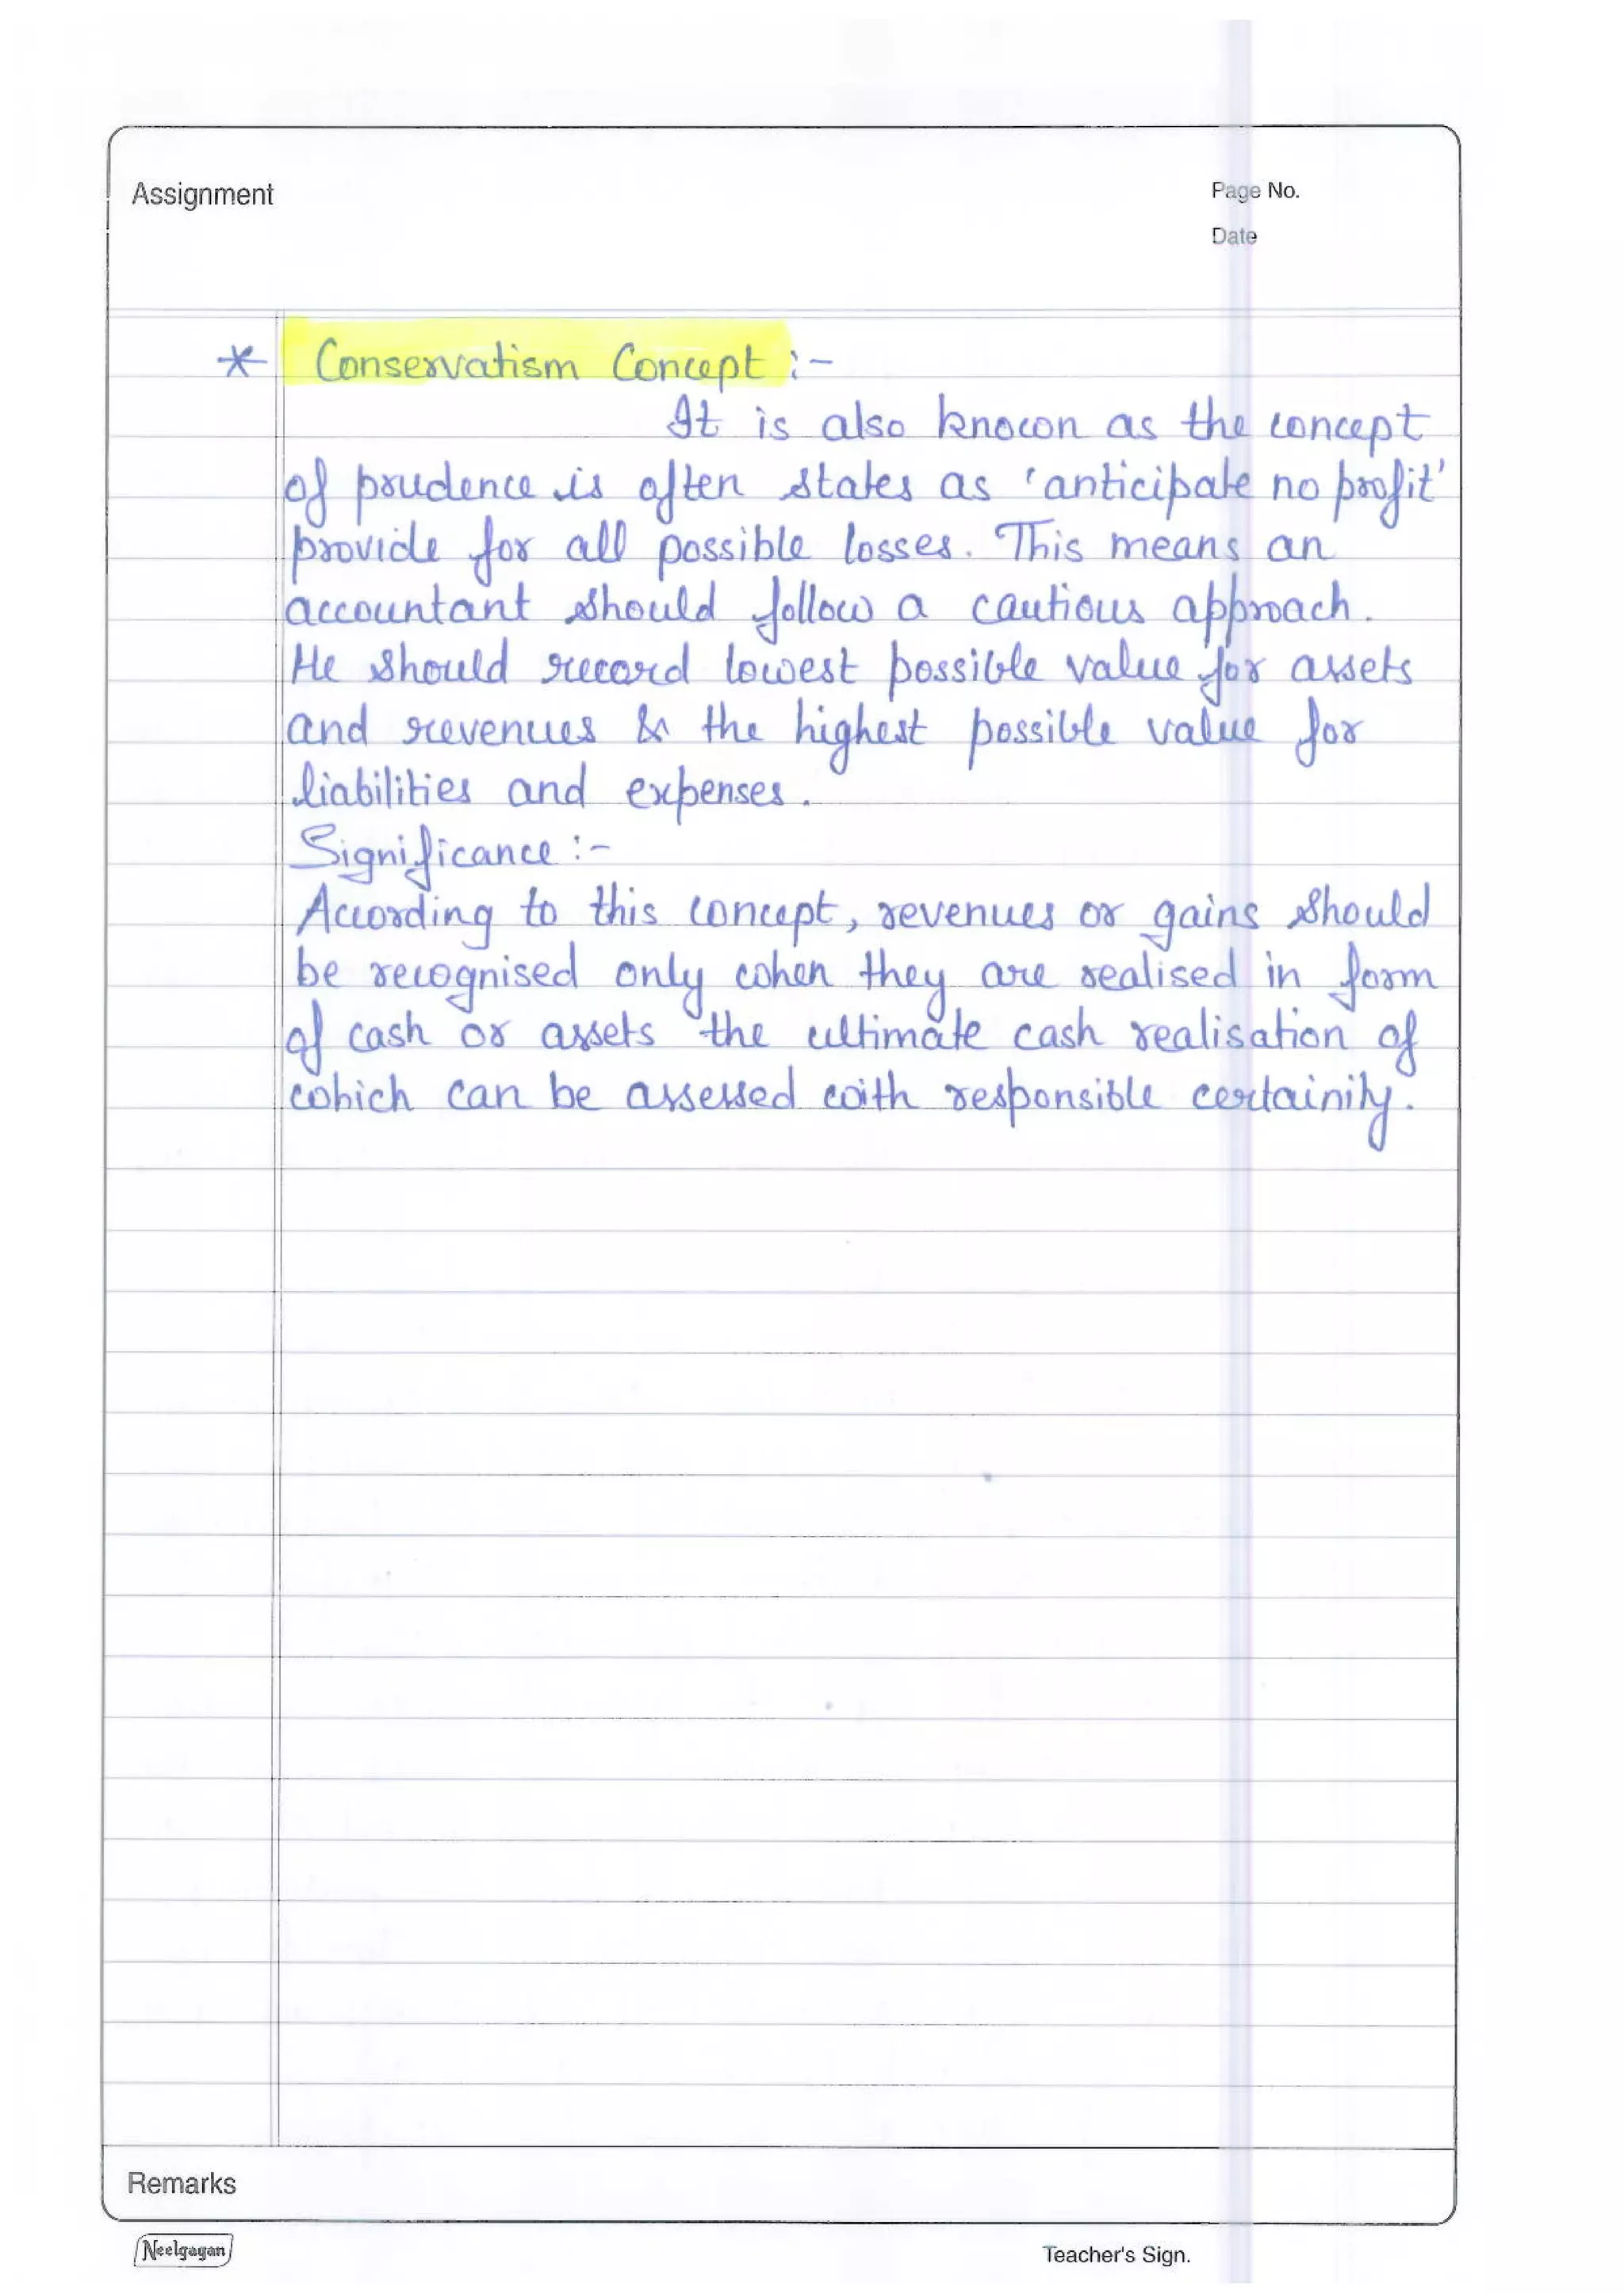 Assignment
Page No.
Date
* Conservatism Concept :-
It is also known as the concept
of prudence is often states as 'anticipate no profit'
provide for all possible losses. This means an
accountant should follow a cautious approach.
He should record lowest possible value for assets
and revenues & the highest possible value for
liabilities and expenses.
Significance :-
According to this concept, revenues or gains should
be recognised only when they are realised in form
of cash or assets the ultimate cash realisation of
which can be assessed with responsible certainity.
Remarks
Neelgagan
Teacher's Sign.